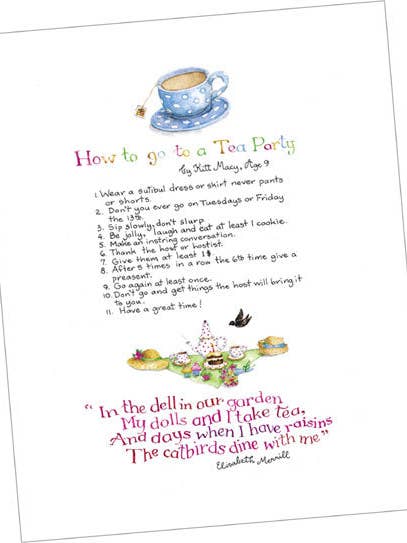 How to go to a Tea Party
by Kitt Macy, Age 9
1. Wear a sutibul dress or skirt never pants
or shorts.
2. Don't you ever go on Tuesdays or Friday
the 13th.
3. Sip slowly, don't slurp
4. Be jolly, laugh and eat at least 1 cookie.
5. Make an instring conversation.
6. Thank the host or hostist.
7. Give them at least 1$
8. After 5 times in a row the 6th time give a
preasent.
9. Go again at least once.
10. Don't go and get things the host will bring it
to you.
11. Have a great time!
"In the dell in our garden
My dolls and I take tea,
And days when I have raisins
The catbirds dine with me"
Elizabeth Merrill